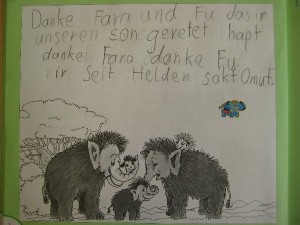 Danke Fara und Fu das ir
unseren son geretet hapt
danke Fara danke Fu.
ir seit Helden sakt Omut.